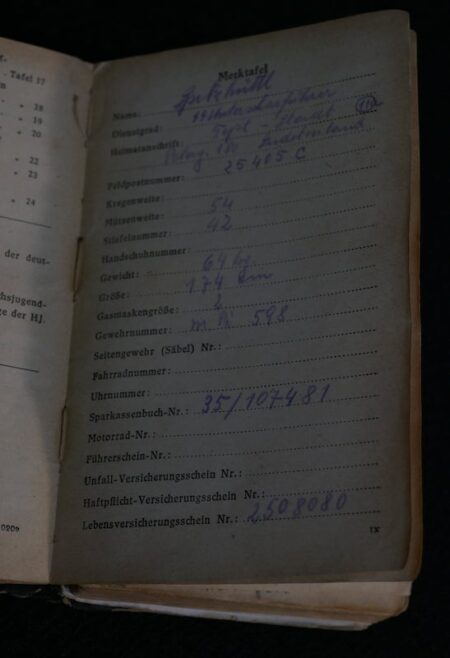 Tafel 17
" 18
" 19
" 20
" 22
" 23
" 24
der deut-
hsjugend-
ge der HJ.
0209
Merktafel
Name:
Dienstgrad: SS Unterscharführer
Heimatanschrift:
Feldpostnummer: 25405 C
Kragenweite:
Mützenweite: 54
Stiefelnummer: 42
Handschuhnummer:
Gewicht: 64 kg.
Größe: 174 cm
Gasmaskengröße: 2
Gewehrnummer: 598
Seitengewehr (Säbel) Nr.:
Fahrradnummer:
Uhrnummer:
Sparkassenbuch-Nr.: 35/107481
Motorrad-Nr.:
Führerschein-Nr.:
Unfall-Versicherungsschein Nr.:
Haftpflicht-Versicherungsschein Nr.:
Lebensversicherungsschein Nr.: 2508080
IX